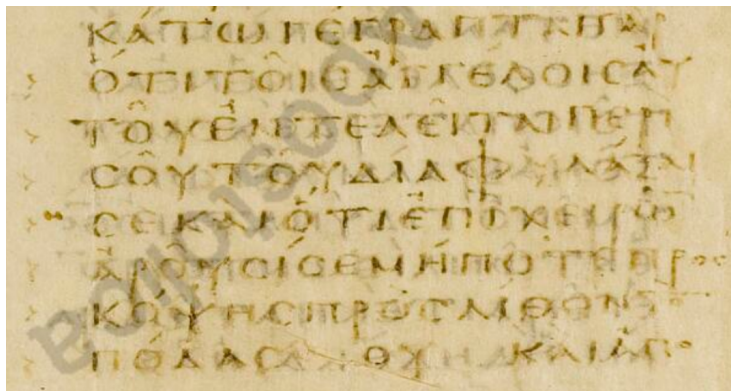 ΚΑΤΩΓΕΓΡΑΠΤΑΙΓΑΡ
ΌΤΙΤΟΙϹΑΓΓΕΛΟΙϹΑΥ
ΤΟΥΕΝΤΕΛΕΙΤΑΙΠΕΡΙ
ϹΟΥΤΟΥΔΙΑΦΥΛΑΞΑΙ
ϹΕΚΑΙΌΤΙΕΠΙΧΕΙΡΩ̅
ΑΡΟΥϹΙϹΕΜΗΠΟΤΕΠΡΟϹ
ΚΟΨΗϹΠΡΟϹΛΙΘΟΝΤΟ̅
ΠΟΔΑϹΟΥΚΑΙΑΠΟ